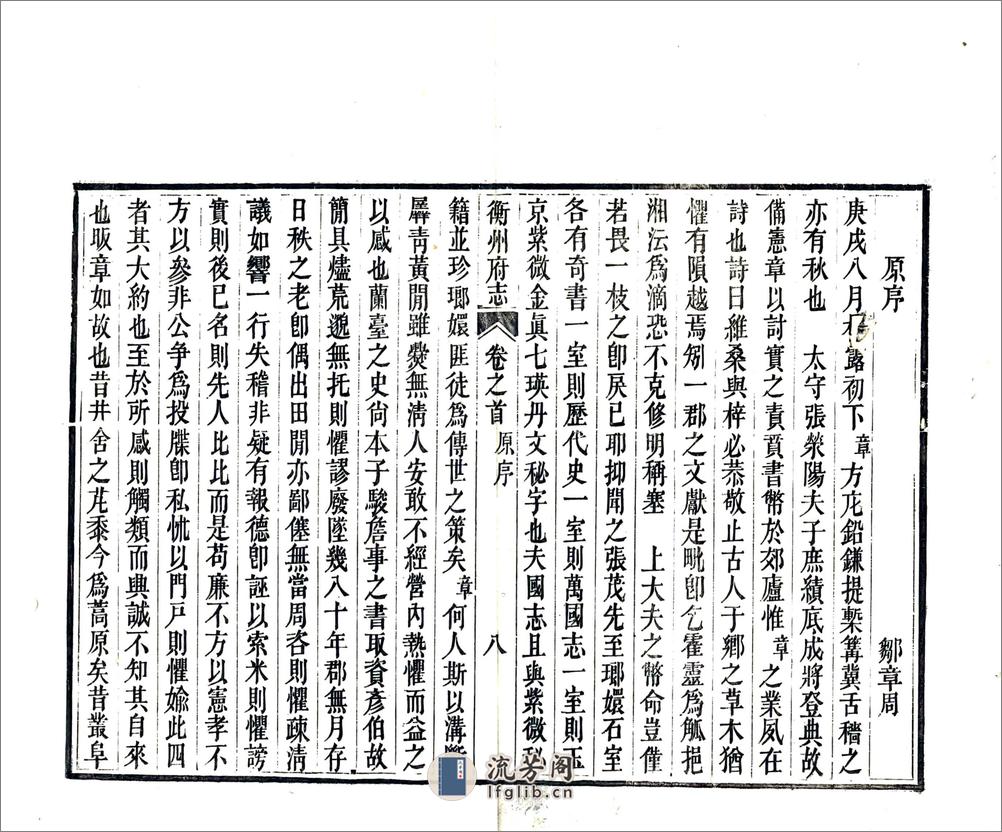 原序
鄒章周
庚戌八月白露初下章方庀鉛鎌提槧篝冀舌穡之
亦有秋也　太守張滎陽夫子庶績底成將登典故
備憲章以討實之責賁書幣於郊廬惟章之業夙在
詩也詩曰維桑與梓必恭敬止古人于鄉之草木猶
懼有隕越焉矧一郡之文獻是毗卽乞霍靈爲觚挹
湘沄爲滴恐不克修明稱塞　上大夫之幣命豈僅
若畏一枝之卽戾已耶抑聞之張茂先至瑯嬛石室
各有奇書一室則歷代史一室則萬國志一室則玉
京紫微金眞七瑛丹文秘字也夫國志且與紫微秘
衡州府志　卷之首　原序　八
籍並珍瑯嬛匪徒爲傳世之策矣章何人斯以溝
羼靑黃閒雖爨無淸人安敢不經營內熱懼而益之
以感也蘭臺之史尙本子駿詹事之書取資彥伯故
簡具燼荒邈無托則懼謬廢墜幾八十年郡無月存
日秩之老卽偶出田閒亦鄙僿無當周咨則懼疎淸
議如響一行失稽非疑有報德卽誣以索米則懼謗
實則後已名則先人比比而是苟廉不方以憲孝不
方以參非公爭爲投牒卽私怵以門戸則懼婾此四
者其大約也至於所感則觸類而興誠不知其自來
也販章如故也昔井舍之芃黍今爲蒿原矣昔叢阜
流芳阁
lfglib.cn